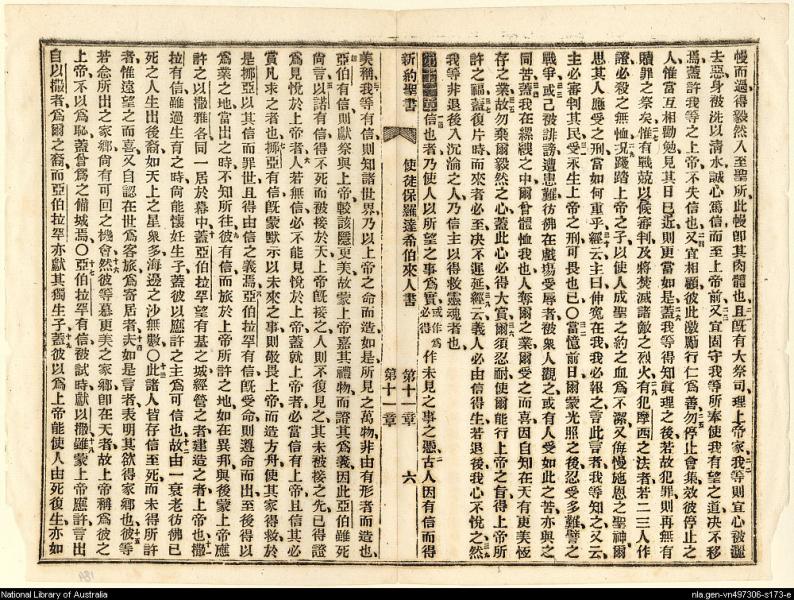 幔而過得毅然入至聖所此幔卽其肉體也且旣有大祭司理上帝家我等則宜心被灑
去惡身被洗以清水誠心篤信而至上帝前又宜固守我等所奉使我有望之道决不移
焉蓋許我等之上帝不失信也又宜相顧彼此激勵行仁爲善勿停止會集效彼停止之
人惟當互相勸勉見其日已近則更當如是蓋我等得知眞理之後若故犯罪則再無有
贖罪之祭矣惟有戰兢以候審判及將焚滅諸敵之烈火有犯摩西之法者若二三人作
證必殺之無恤况踐踏上帝之子以使人成聖之約之血爲不潔又侮慢施恩之聖神爾
思其人應受之刑當如何重乎經云主曰伸寃在我我必報之言此言者我等知之又云
主必審判其民受永生上帝之刑可畏也已〇當憶前日爾蒙光照之後忍受多難譬之
戰爭或己被誹謗遭患難彷彿在戲場受辱者被衆人觀之或有人受如此之苦亦與之
同苦蓋我在縲絏之中爾曾體恤我也人奪爾之業爾受之而喜因自知在天有更美恆
存之業故勿棄爾毅然之心蓋此心必得大賞爾須忍耐使爾能行上帝之旨得上帝所
許之福蓋復片時而來者必至决不遲延經云義人必由信得生若退後我心不悅之然
我等非退後入沉淪之人乃信主以得救靈魂者也
信也者乃使人以所望之事爲實或作爲必得作未見之事之憑古人因有信而得
新約聖書 使徒保羅達希伯來人書 第十一章 第十一章 六
美稱我等有信則知諸世界乃以上帝之命而造如是所見之萬物非由有形者而造也
亞伯有信則獻祭與上帝較該隱更美故蒙上帝嘉其禮物而證其爲義因此亞伯雖死
尚言以諾有信得不死而被接於天上帝旣接之人則不復見之其未被接之先已得證
爲見悅於上帝者人若無信必不能見悅於上帝蓋就上帝者必當信有上帝且信其必
賞凡求之者也挪亞有信旣蒙默示以未來之事則敬畏上帝而造方舟使其家得救於
是挪亞以其信而罪世且得由信之義焉亞伯拉罕有信旣受命則遵命而出至後得以
爲業之地當出之時不知所往彼有信而旅於上帝所許之地如在異邦與後蒙上帝應
許之以撒雅各同一居於幕中蓋亞伯拉罕望有基之城經營之者建造之者上帝也撒
拉有信雖過生育之時尚能懷妊生子蓋彼以應許之主爲可信也故由一衰老彷彿已
死之人生出後裔如天上之星衆多海邊之沙無數〇此諸人皆存信至死而未得所許
者惟遠望之而喜又自認在世爲客旅爲寄居者夫如是言者表明其欲得家鄉也彼等
若念所出之家鄉尚有可回之機會然彼等慕更美之家鄉卽在天者故上帝稱爲彼之
上帝不以爲恥蓋曾爲之備城焉〇亞伯拉罕有信被試時獻以撒雖蒙上帝應許言出
自以撒者爲爾之裔而亞伯拉罕亦獻其獨生子蓋彼以爲上帝能使人由死復生亦如
181
National Library of Australia
nla.gen-vn497306-s173-e